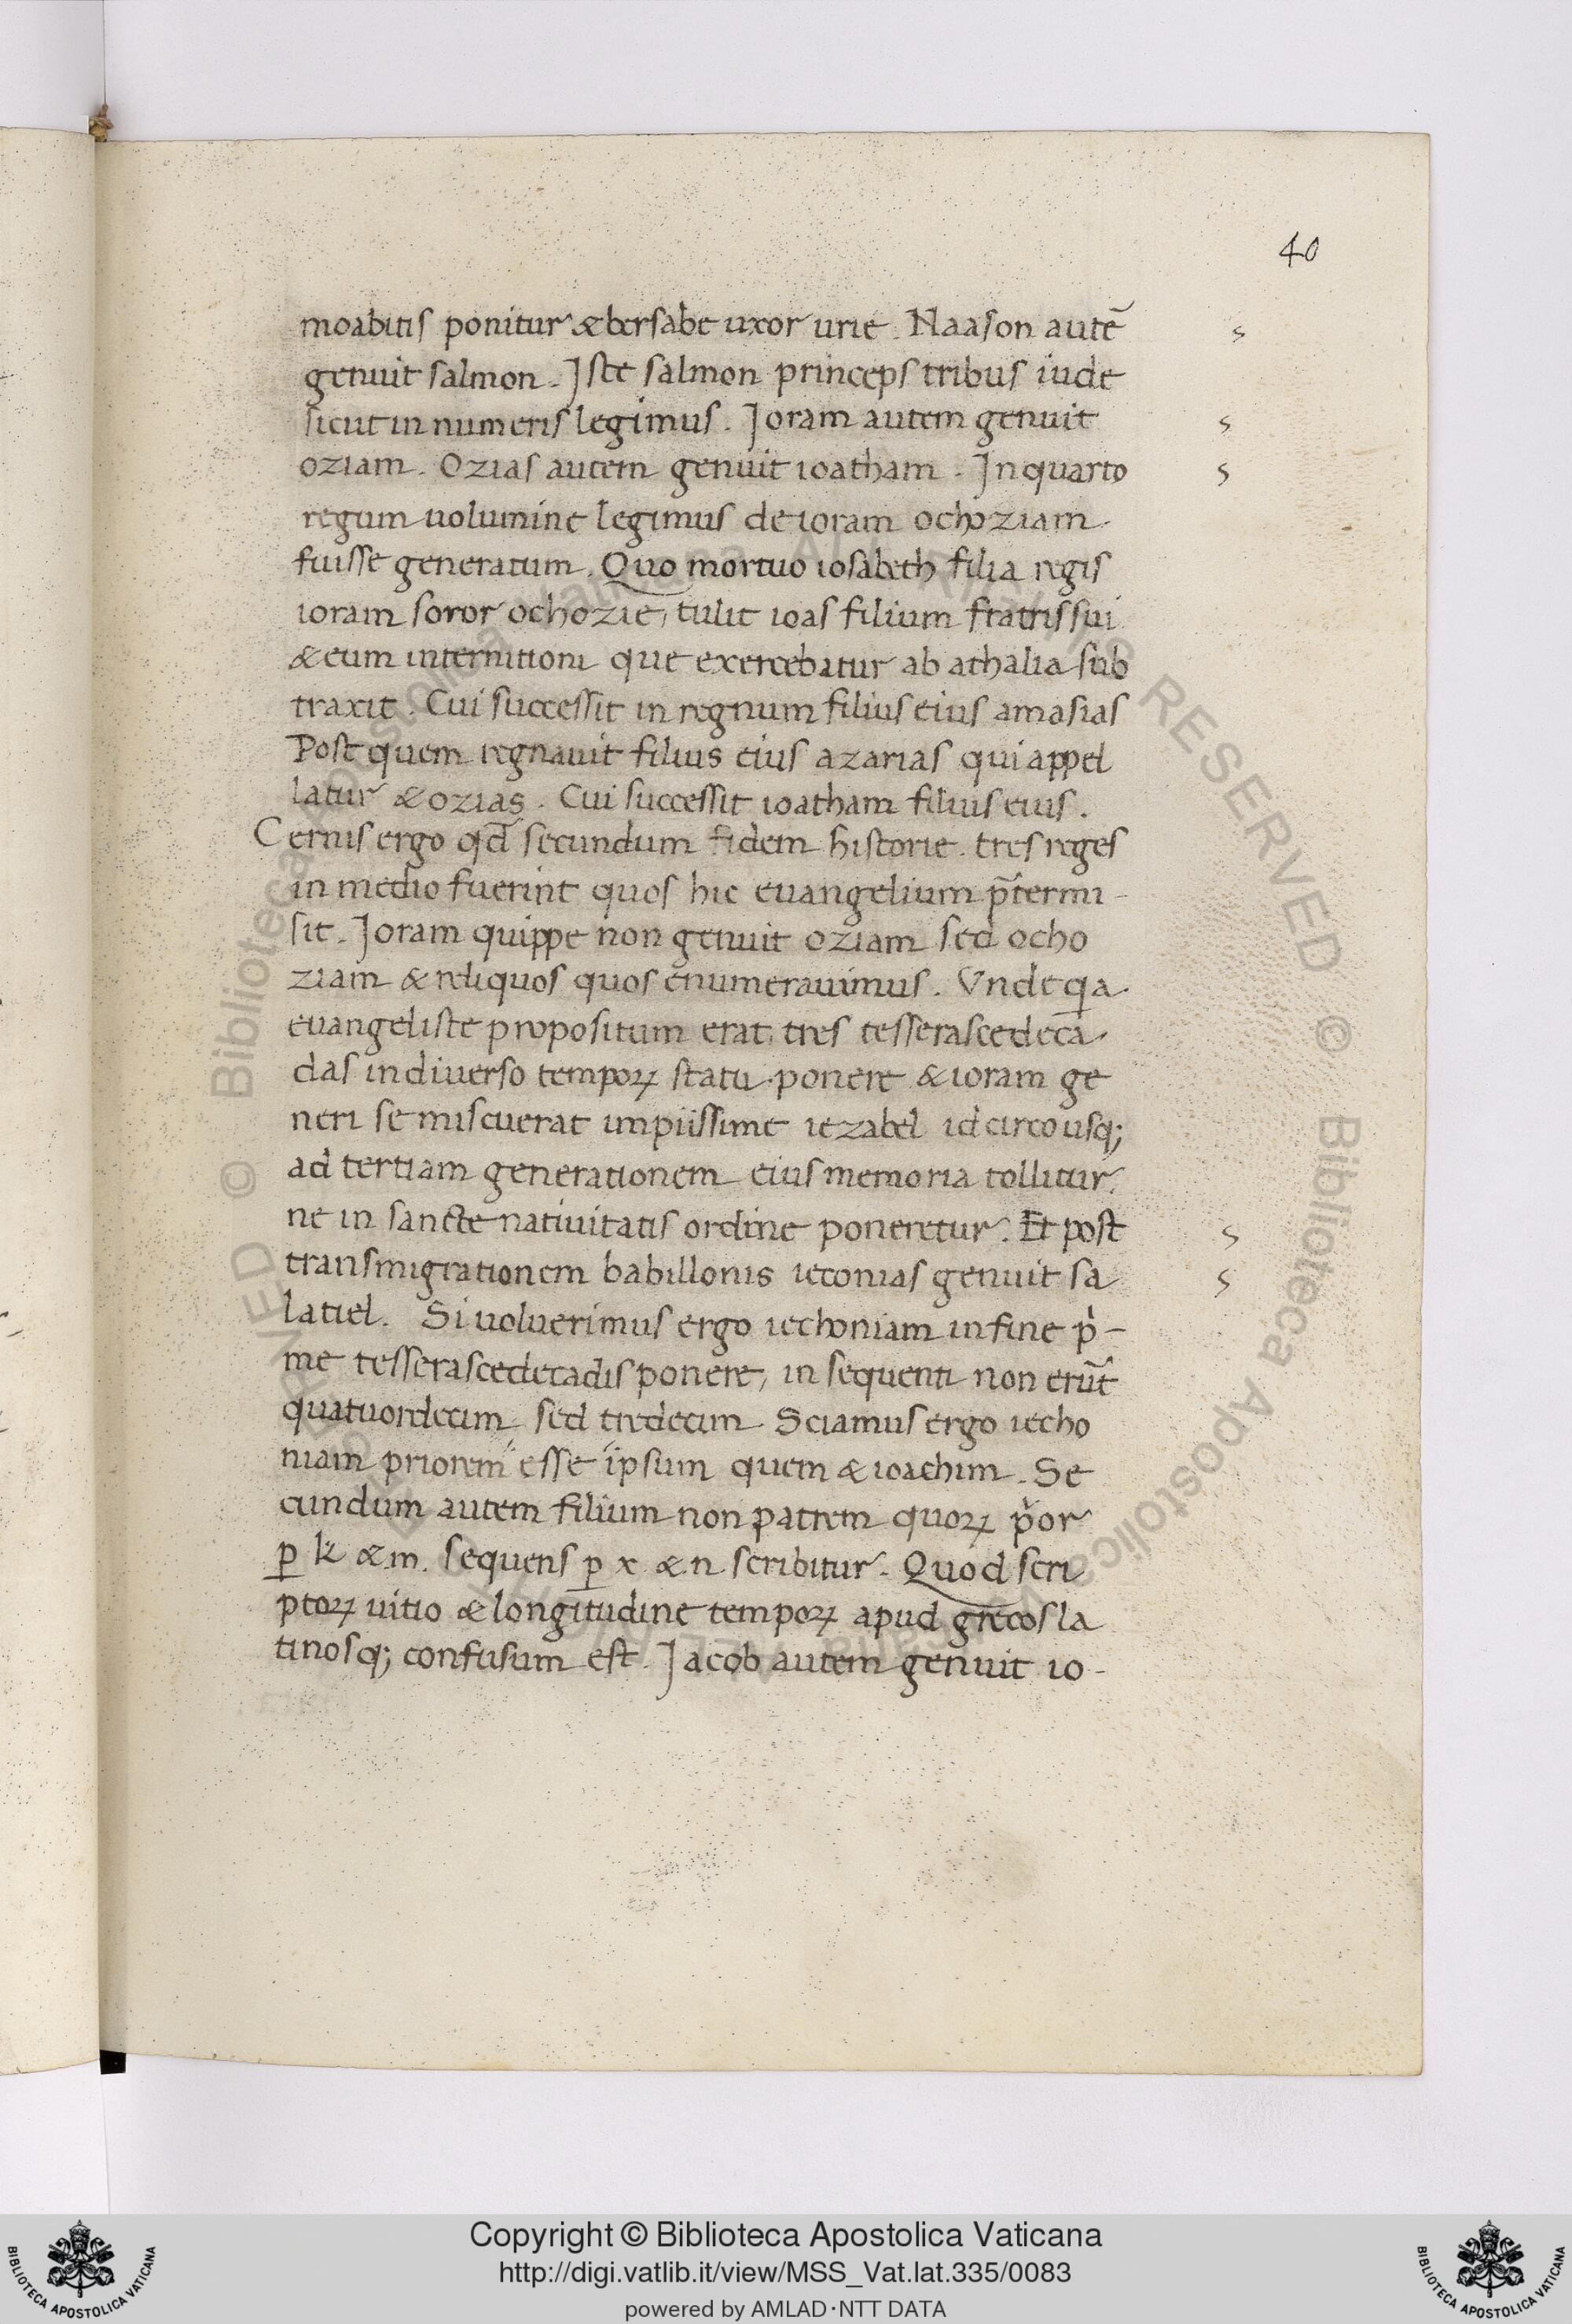 40
moabitis ponitur & bersabe uxor urie. Naason autē
genuit salmon. Iste salmon princeps tribus iude
sicut in numeris legimus. Ioram autem genuit
oziam. Ozias autem genuit ioatham. In quarto
regum uolumine legimus de ioram ochoziam
fuisse generatum. Quo mortuo iosabeth filia regis
ioram soror ochozie, tulit ioas filium fratris sui
& eum internitioni que exercebatur ab athalia sub
traxit. Cui successit in regnum filius eius amasias
Post quem regnauit filius eius azarias qui appel
latur & ozias. Cui successit ioatham filius eius.
Cernis ergo qđ secundum fidem historie. tres reges
in medio fuerint quos hic euangelium p̄termi-
sit. Ioram quippe non genuit oziam sed ocho
ziam & reliquos quos enumerauimus. Vnde qa
euangeliste propositum erat, tres tesserascedeca
das in diuerso temporꝝ statu ponere & ioram ge
neri se miscuerat impiissime iezabel idcirco usq;
ad tertiam generationem eius memoria tollitur,
ne in sancte natiuitatis ordine poneretur. Et post
transmigrationem babillonis ieconias genuit sa
latiel. Si uoluerimus ergo iechoniam in fine p̍-
me tesserascedecadis ponere, in sequenti non erūt
quatuordecim sed tredecim. Sciamus ergo iecho
niam priorem esse ipsum quem & ioachim. Se
cundum autem filium non patrem quorꝝ p̍or
ꝑ k & m. sequens ꝑ x & n scribitur. Quod scri
ptorꝝ uitio & longitudine temporꝝ apud grecos la
tinosq; confusum est. Iacob autem genuit io-
© Biblioteca Apostolica Vaticana ALL RIGHTS RESERVED
Copyright © Biblioteca Apostolica Vaticana
http://digi.vatlib.it/view/MSS_Vat.lat.335/0083
powered by AMLAD·NTT DATA
BIBLIOTECA APOSTOLICA VATICANA
BIBLIOTECA APOSTOLICA VATICANA